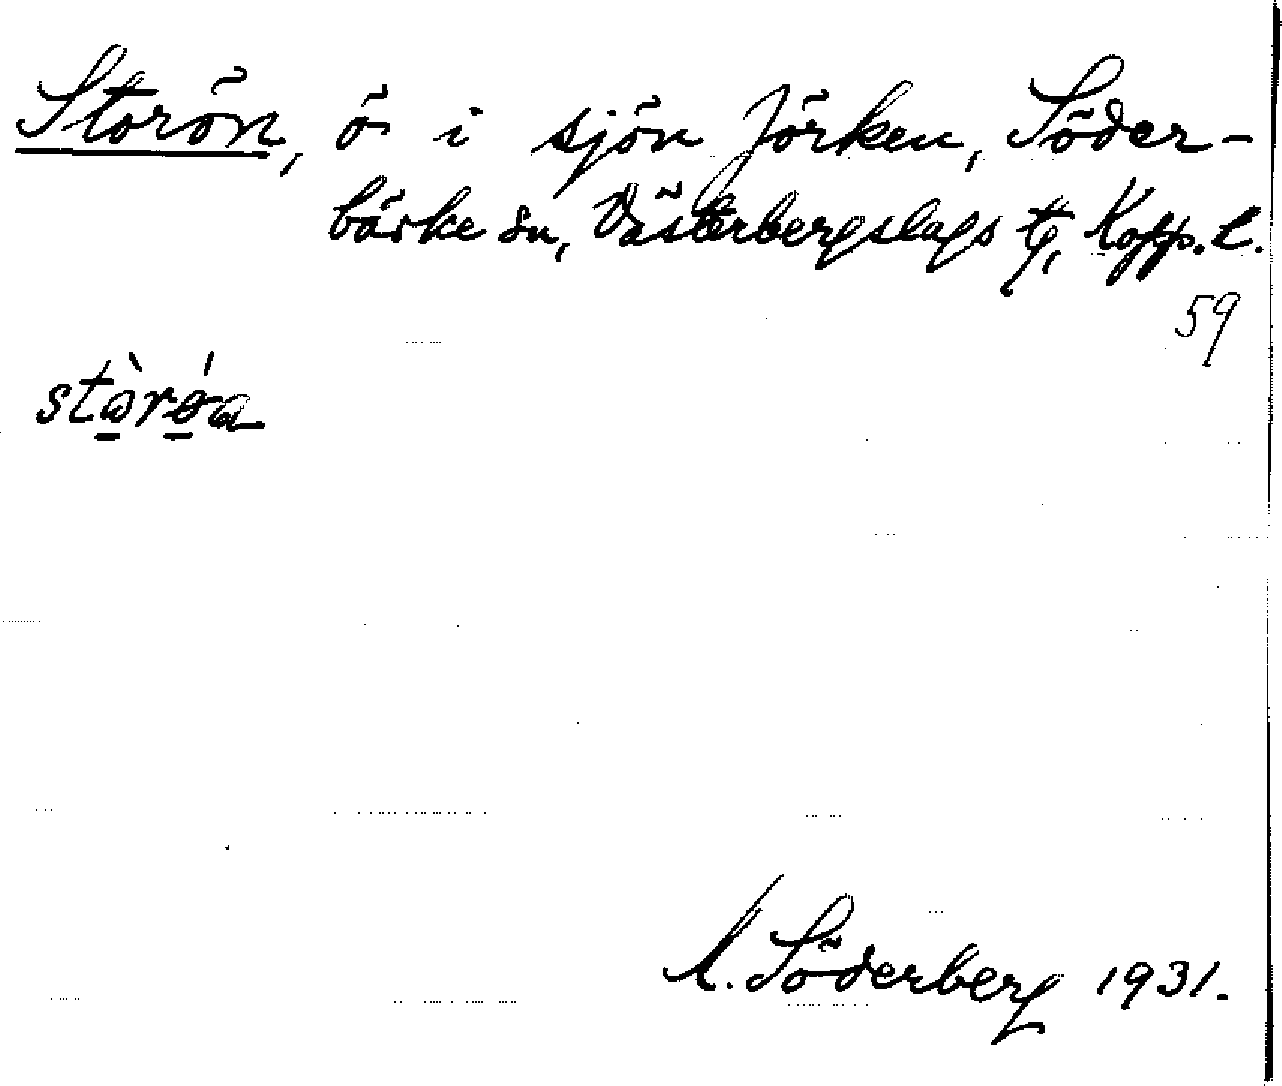 Storön, ö i sjön Jörken, Söder-
bärke sn, Västerbergslags tg, Kopp. l.
59
stò̱rǿ̱a
A. Söderberg 1931.